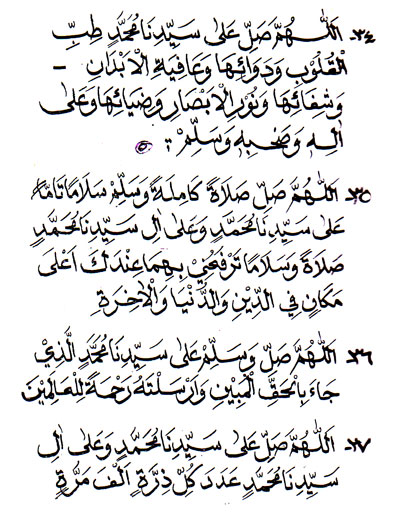 ٣٤- اَللّٰهُمَّ صَلِّ عَلٰى سَيِّدِنَا مُحَمَّدٍ طِبِّ
الْقُلُوْبِ وَدَوَائِهَا وَعَافِيَةِ الْاَبْدَانِ –
وَشِفَائِهَا وَنُوْرِ الْاَبْصَارِ وَضِيَائِهَا وَعَلٰى
اٰلِهٖ وَصَحْبِهٖ وَسَلِّمْ؛
٣٥- اَللّٰهُمَّ صَلِّ صَلَاةً كَامِلَةً وَسَلِّمْ سَلَامًا تَامًّا
عَلٰى سَيِّدِنَا مُحَمَّدٍ وَعَلٰى اٰلِ سَيِّدِنَا مُحَمَّدٍ
صَلَاةً وَسَلَامًا تَرْفَعُنِيْ بِهِمَا عِنْدَكَ اَعْلٰى
مَكَانٍ فِي الدِّيْنِ وَالدُّنْيَا وَالْاٰخِرَةِ
٣٦- اَللّٰهُمَّ صَلِّ وَسَلِّمْ عَلٰى سَيِّدِنَا مُحَمَّدٍ الَّذِيْ
جَاءَ بِالْحَقِّ الْمُبِيْنِ وَاَرْسَلْتَهُ رَحْمَةً لِلْعَالَمِيْنَ
٣٧- اَللّٰهُمَّ صَلِّ عَلٰى سَيِّدِنَا مُحَمَّدٍ وَعَلٰى اٰلِ
سَيِّدِنَا مُحَمَّدٍ عَدَدَ كُلِّ ذَرَّةٍ اَلْفَ مَرَّةٍ